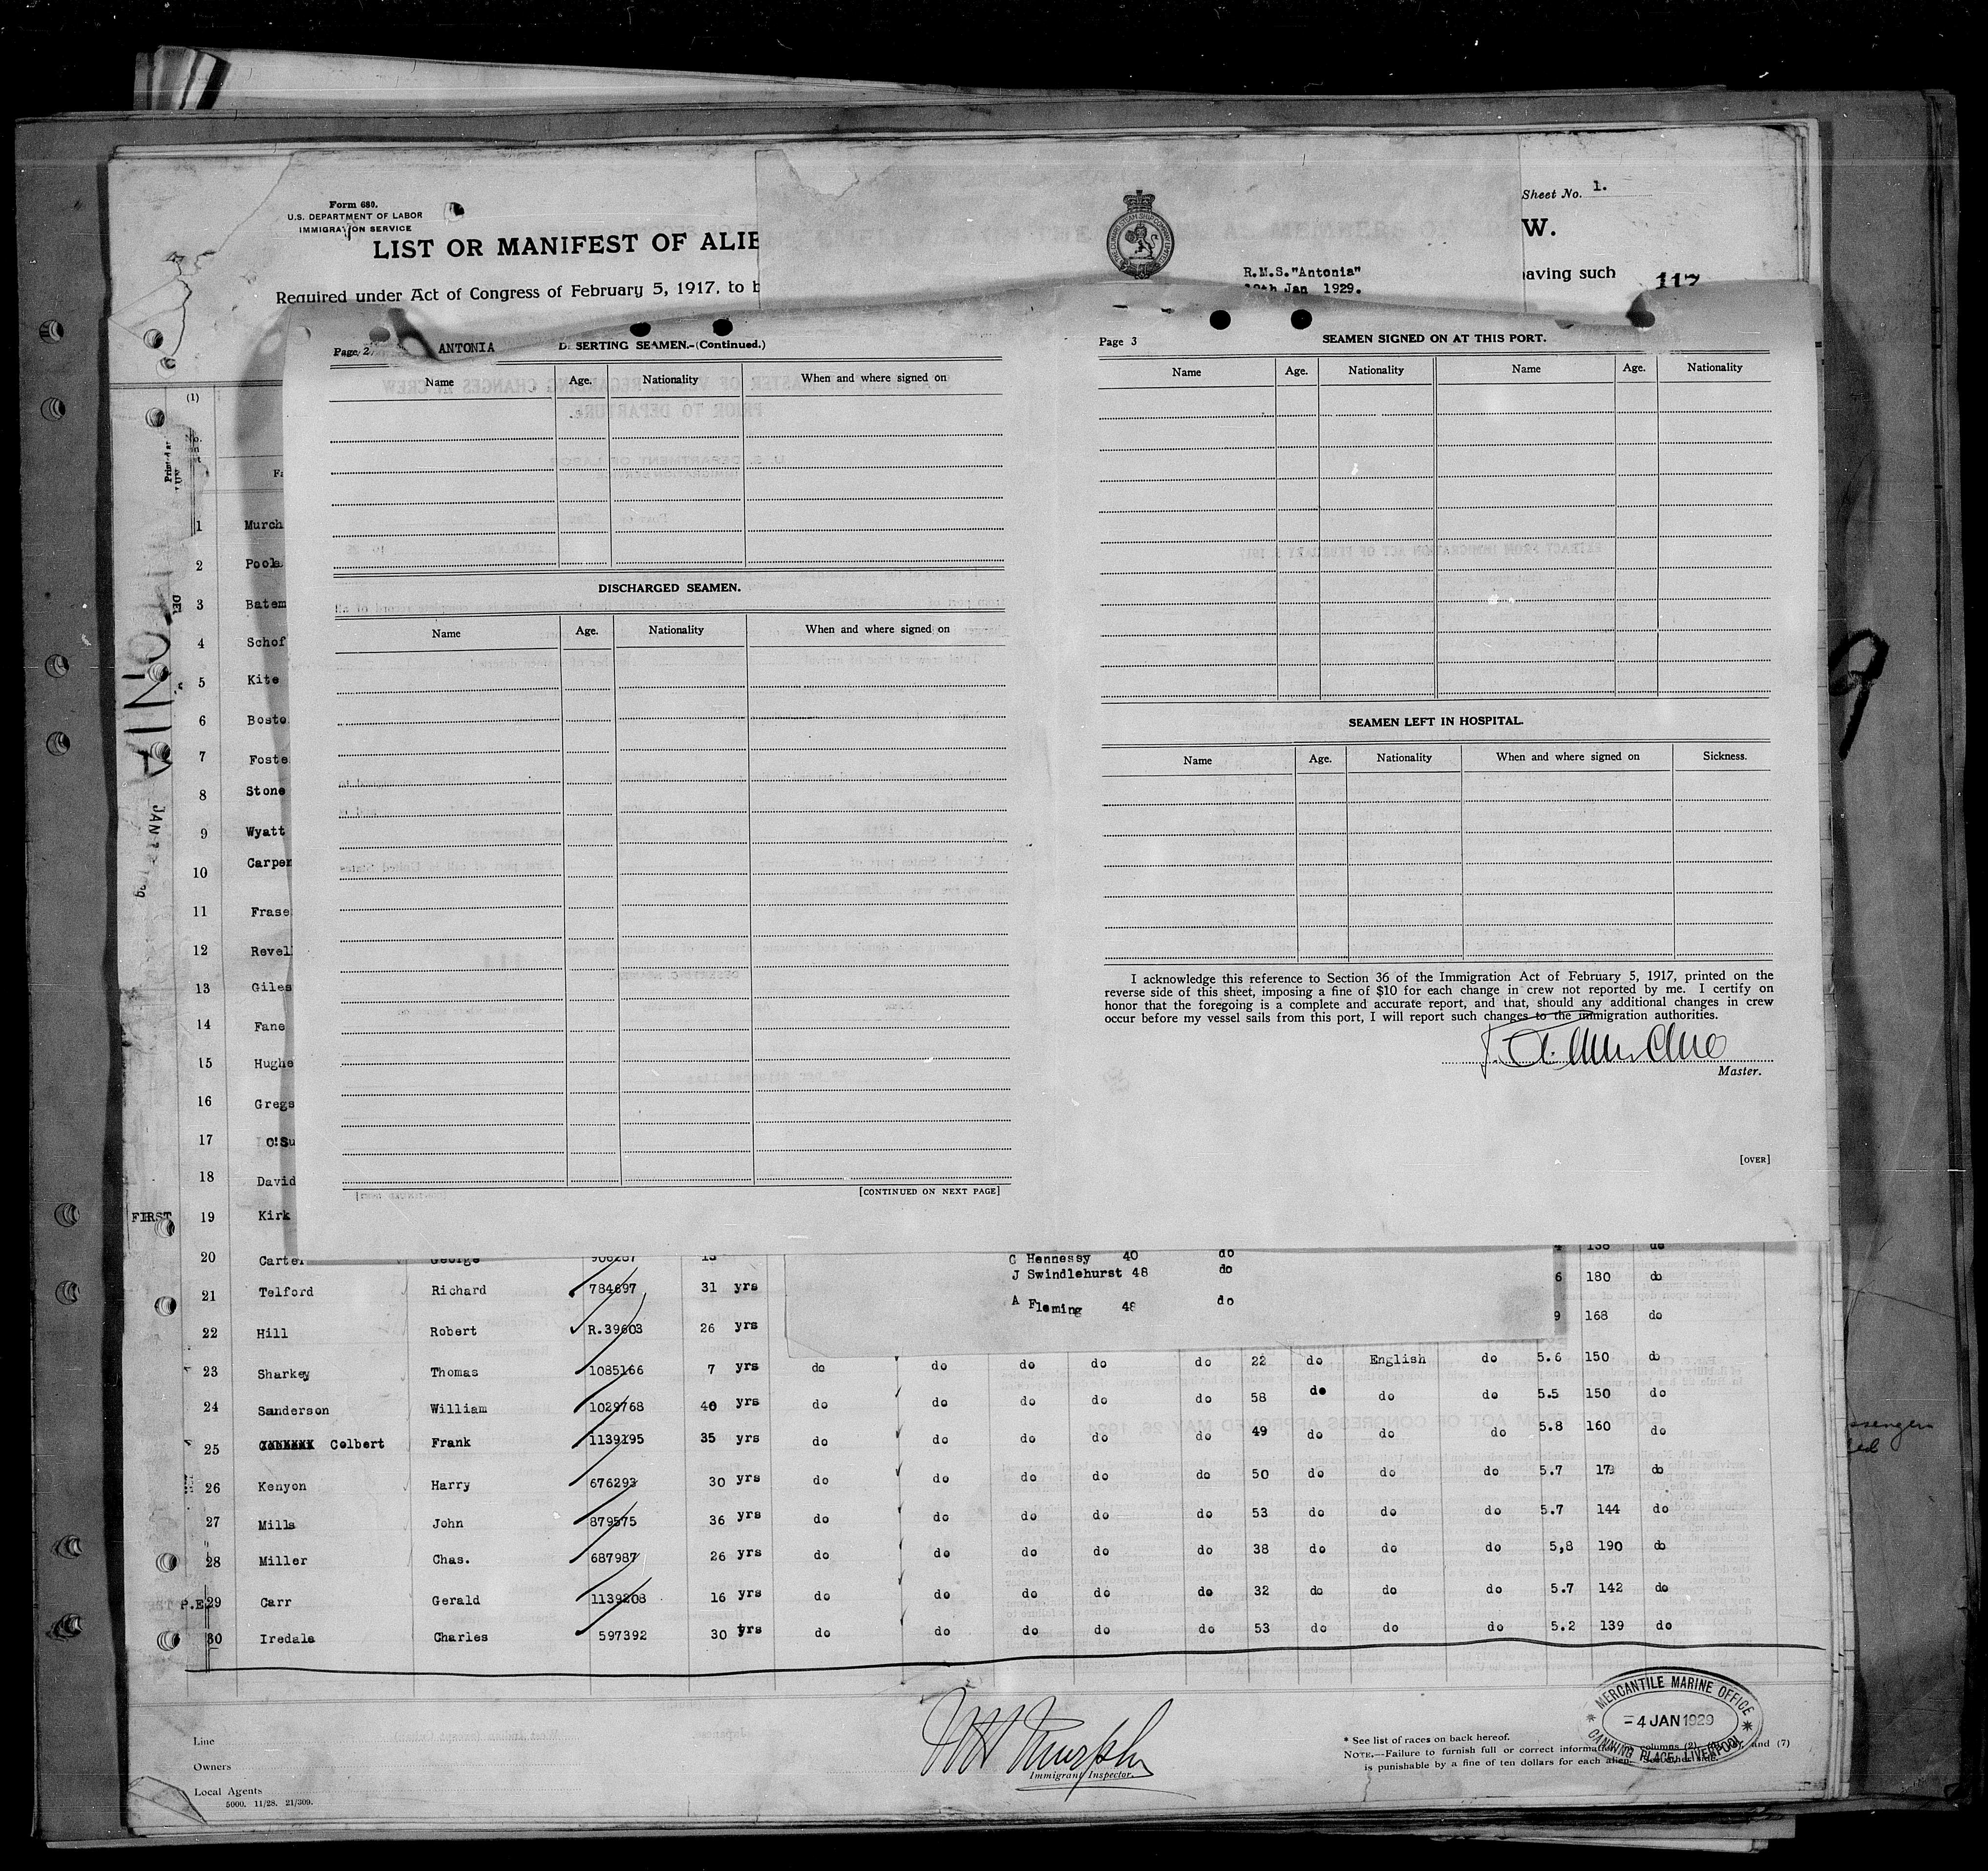 Form 680.
U.S. DEPARTMENT OF LABOR
IMMIGRATION SERVICE
LIST OR MANIFEST OF ALIE
Required under Act of Congress of February 5, 1917, to b
Sheet No. 1.
W.
aving such
117
R.M.S."Antonia"
Jan 1929.
Page 2
ANTONIA
DESERTING SEAMEN.-(Continued.)
Name Age. Nationality When and where signed on
DISCHARGED SEAMEN.
Name Age. Nationality When and where signed on
[CONTINUED ON NEXT PAGE]
Page 3
SEAMEN SIGNED ON AT THIS PORT.
Name Age. Nationality Name Age. Nationality
SEAMEN LEFT IN HOSPITAL.
Name Age. Nationality When and where signed on Sickness.
I acknowledge this reference to Section 36 of the Immigration Act of February 5, 1917, printed on the
reverse side of this sheet, imposing a fine of $10 for each change in crew not reported by me. I certify on
honor that the foregoing is a complete and accurate report, and that, should any additional changes in crew
occur before my vessel sails from this port, I will report such changes to the immigration authorities.
Master.
[OVER]
(1)
1 Murch
2 Poole
3 Batem
4 Schof
5 Kite
6 Bosto
7 Foste
8 Stone
9 Wyatt
10 Carpen
11 Frase
12 Revell
13 Giles
14 Fane
15 Hughe
16 Gregs
17 O'Su
18 David
FIRST 19 Kirk
20 Carter George 138 do
C Hennessy 40 do
J Swindlehurst 48 do
A Fleming 48 do
21 Telford Richard 784697 31 yrs 6 180 do
22 Hill Robert R.39603 26 yrs 9 168 do
23 Sharkey Thomas 1085166 7 yrs do do do do do 22 do English do 5.6 150 do
24 Sanderson William 1029768 40 yrs do do do do do 58 do do do 5.5 150 do
25 Colbert Frank 1139195 35 yrs do do do do do 49 do do do 5.8 160 do
26 Kenyon Harry 676293 30 yrs do do do do do 50 do do do 5.7 173 do
27 Mills John 879575 36 yrs do do do do do 53 do do do 5.7 144 do
28 Miller Chas. 687987 26 yrs do do do do do 38 do do do 5,8 190 do
P.E. 29 Carr Gerald 1139203 16 yrs do do do do do 32 do do do 5.7 142 do
30 Iredale Charles 597392 30 yrs do do do do do 53 do do do 5.2 139 do
Line
Owners
Local Agents
5000. 11/28. 21/309.
Murphy
Immigrant Inspector.
* See list of races on back hereof.
NOTE.—Failure to furnish full or correct information columns (2), and (7)
is punishable by a fine of ten dollars for each alien. See other side.
MERCANTILE MARINE OFFICE
-4 JAN 1929
CANNING PLACE, LIVERPOOL